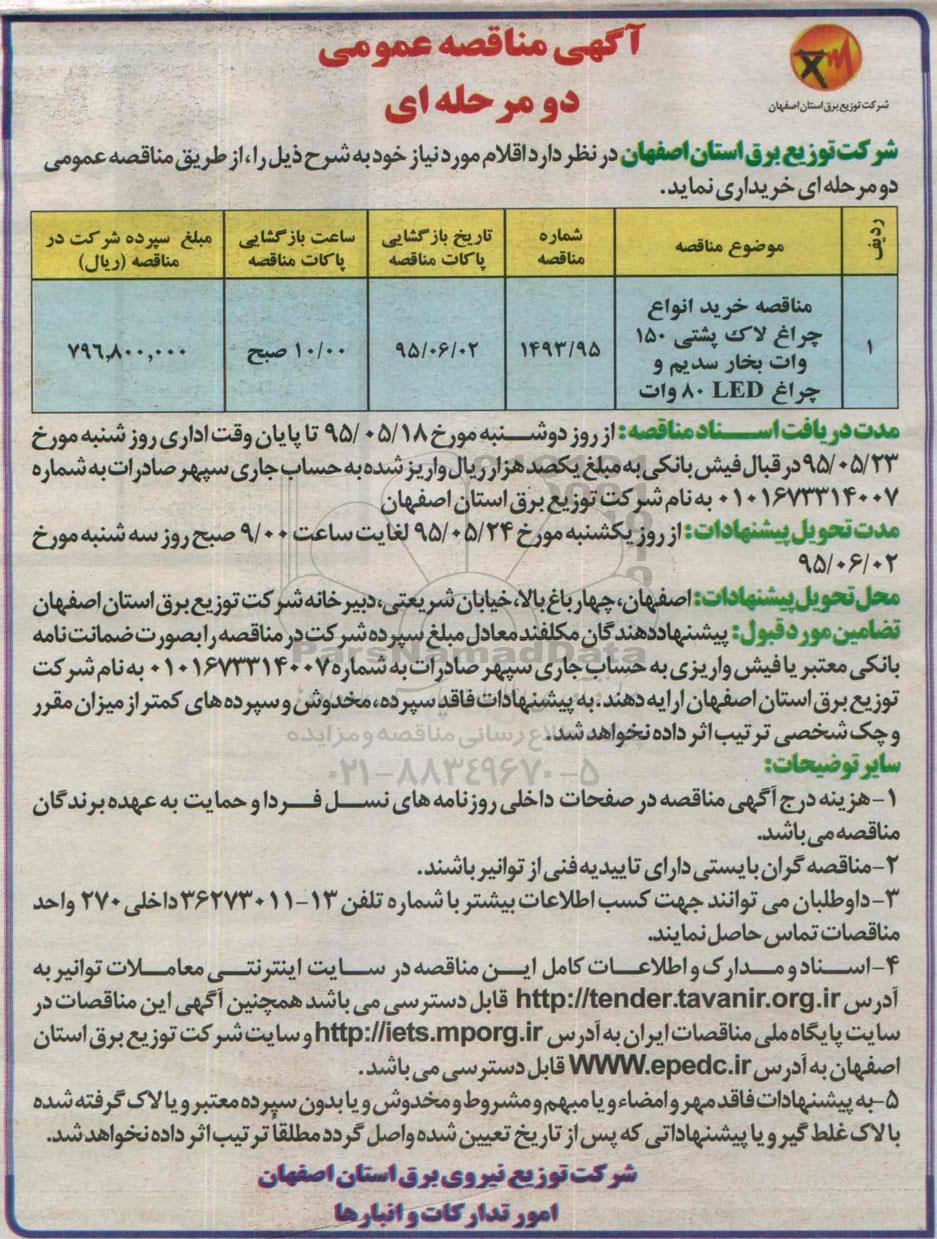 آگهی مناقصه عمومی
دو مرحله ای
شرکت توزیع برق استان اصفهان
شرکت توزیع برق استان اصفهان در نظر دارد اقلام مورد نیاز خود به شرح ذیل را، از طریق مناقصه عمومی
دو مرحله ای خریداری نماید.
ردیف
موضوع مناقصه
شماره
مناقصه
تاریخ بازگشایی
پاکات مناقصه
ساعت بازگشایی
پاکات مناقصه
مبلغ سپرده شرکت در
مناقصه (ریال)
۱
مناقصه خرید انواع
چراغ لاک پشتی ۱۵۰
وات بخار سدیم و
چراغ LED ۸۰ وات
۱۴۹۳/۹۵
۹۵/۰۶/۰۲
۱۰/۰۰ صبح
۷۹۶,۸۰۰,۰۰۰
مدت دریافت اسناد مناقصه: از روز دوشنبه مورخ ۹۵/۰۵/۱۸ تا پایان وقت اداری روز شنبه مورخ
۹۵/۰۵/۲۳ در قبال فیش بانکی به مبلغ یکصد هزار ریال واریز شده به حساب جاری سپهر صادرات به شماره
۰۱۰۱۶۷۳۳۱۴۰۰۷ به نام شرکت توزیع برق استان اصفهان
مدت تحویل پیشنهادات: از روز یکشنبه مورخ ۹۵/۰۵/۲۴ لغایت ساعت ۹/۰۰ صبح روز سه شنبه مورخ
۹۵/۰۶/۰۲
محل تحویل پیشنهادات: اصفهان، چهارباغ بالا، خیابان شریعتی، دبیرخانه شرکت توزیع برق استان اصفهان
تضامین مورد قبول: پیشنهاددهندگان مکلفند معادل مبلغ سپرده شرکت در مناقصه را بصورت ضمانت نامه
بانکی معتبر یا فیش واریزی به حساب جاری سپهر صادرات به شماره ۰۱۰۱۶۷۳۳۱۴۰۰۷ به نام شرکت
توزیع برق استان اصفهان ارایه دهند. به پیشنهادات فاقد سپرده، مخدوش و سپرده های کمتر از میزان مقرر
و چک شخصی ترتیب اثر داده نخواهد شد.
سایر توضیحات:
۱-هزینه درج آگهی مناقصه در صفحات داخلی روزنامه های نسل فردا و حمایت به عهده برندگان
مناقصه می باشد.
۲-مناقصه گران بایستی دارای تاییدیه فنی از توانیر باشند.
۳-داوطلبان می توانند جهت کسب اطلاعات بیشتر با شماره تلفن ۱۳-۳۶۲۷۳۰۱۱ داخلی ۲۷۰ واحد
مناقصات تماس حاصل نمایند.
۴-اسناد و مدارک و اطلاعات کامل این مناقصه در سایت اینترنتی معاملات توانیر به
آدرس http://tender.tavanir.org.ir قابل دسترسی می باشد همچنین آگهی این مناقصات در
سایت پایگاه ملی مناقصات ایران به آدرس http://iets.mporg.ir و سایت شرکت توزیع برق استان
اصفهان به آدرس WWW.epedc.ir قابل دسترسی می باشد.
۵-به پیشنهادات فاقد مهر و امضاء و یا مبهم و مشروط و مخدوش و یا بدون سپرده معتبر و یا لاک گرفته شده
با لاک غلط گیر و یا پیشنهاداتی که پس از تاریخ تعیین شده واصل گردد مطلقا ترتیب اثر داده نخواهد شد.
شرکت توزیع نیروی برق استان اصفهان
امور تدارکات و انبارها
ParsNamadData
۰۲۱-۸۸۳۴۹۶۷۰-۵